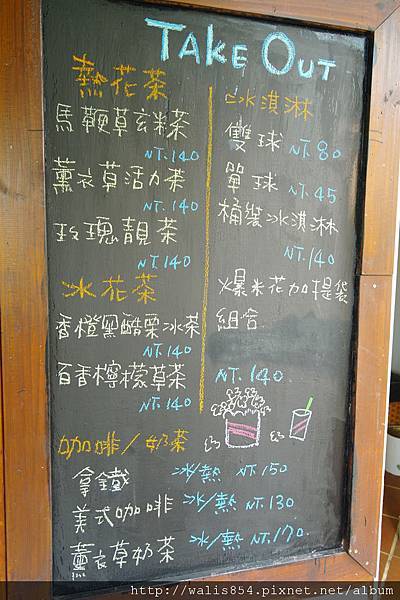 TAKE OUT
熱花茶
馬鞭草玄米茶
NT.140
薰衣草活力茶
NT.140
玫瑰靚茶
NT.140
冰花茶
香橙黑醋栗冰茶
NT.140
百香檸檬草茶
NT.140
冰淇淋
雙球 NT.80
單球 NT.45
桶裝冰淇淋
NT.140
爆米花加提袋
組合
NT.140
咖啡/奶茶
拿鐵 冰/熱 NT.150
美式咖啡 冰/熱 NT.130
薰衣草奶茶 冰/熱 NT.170
http://walis854.pixnet.net/album